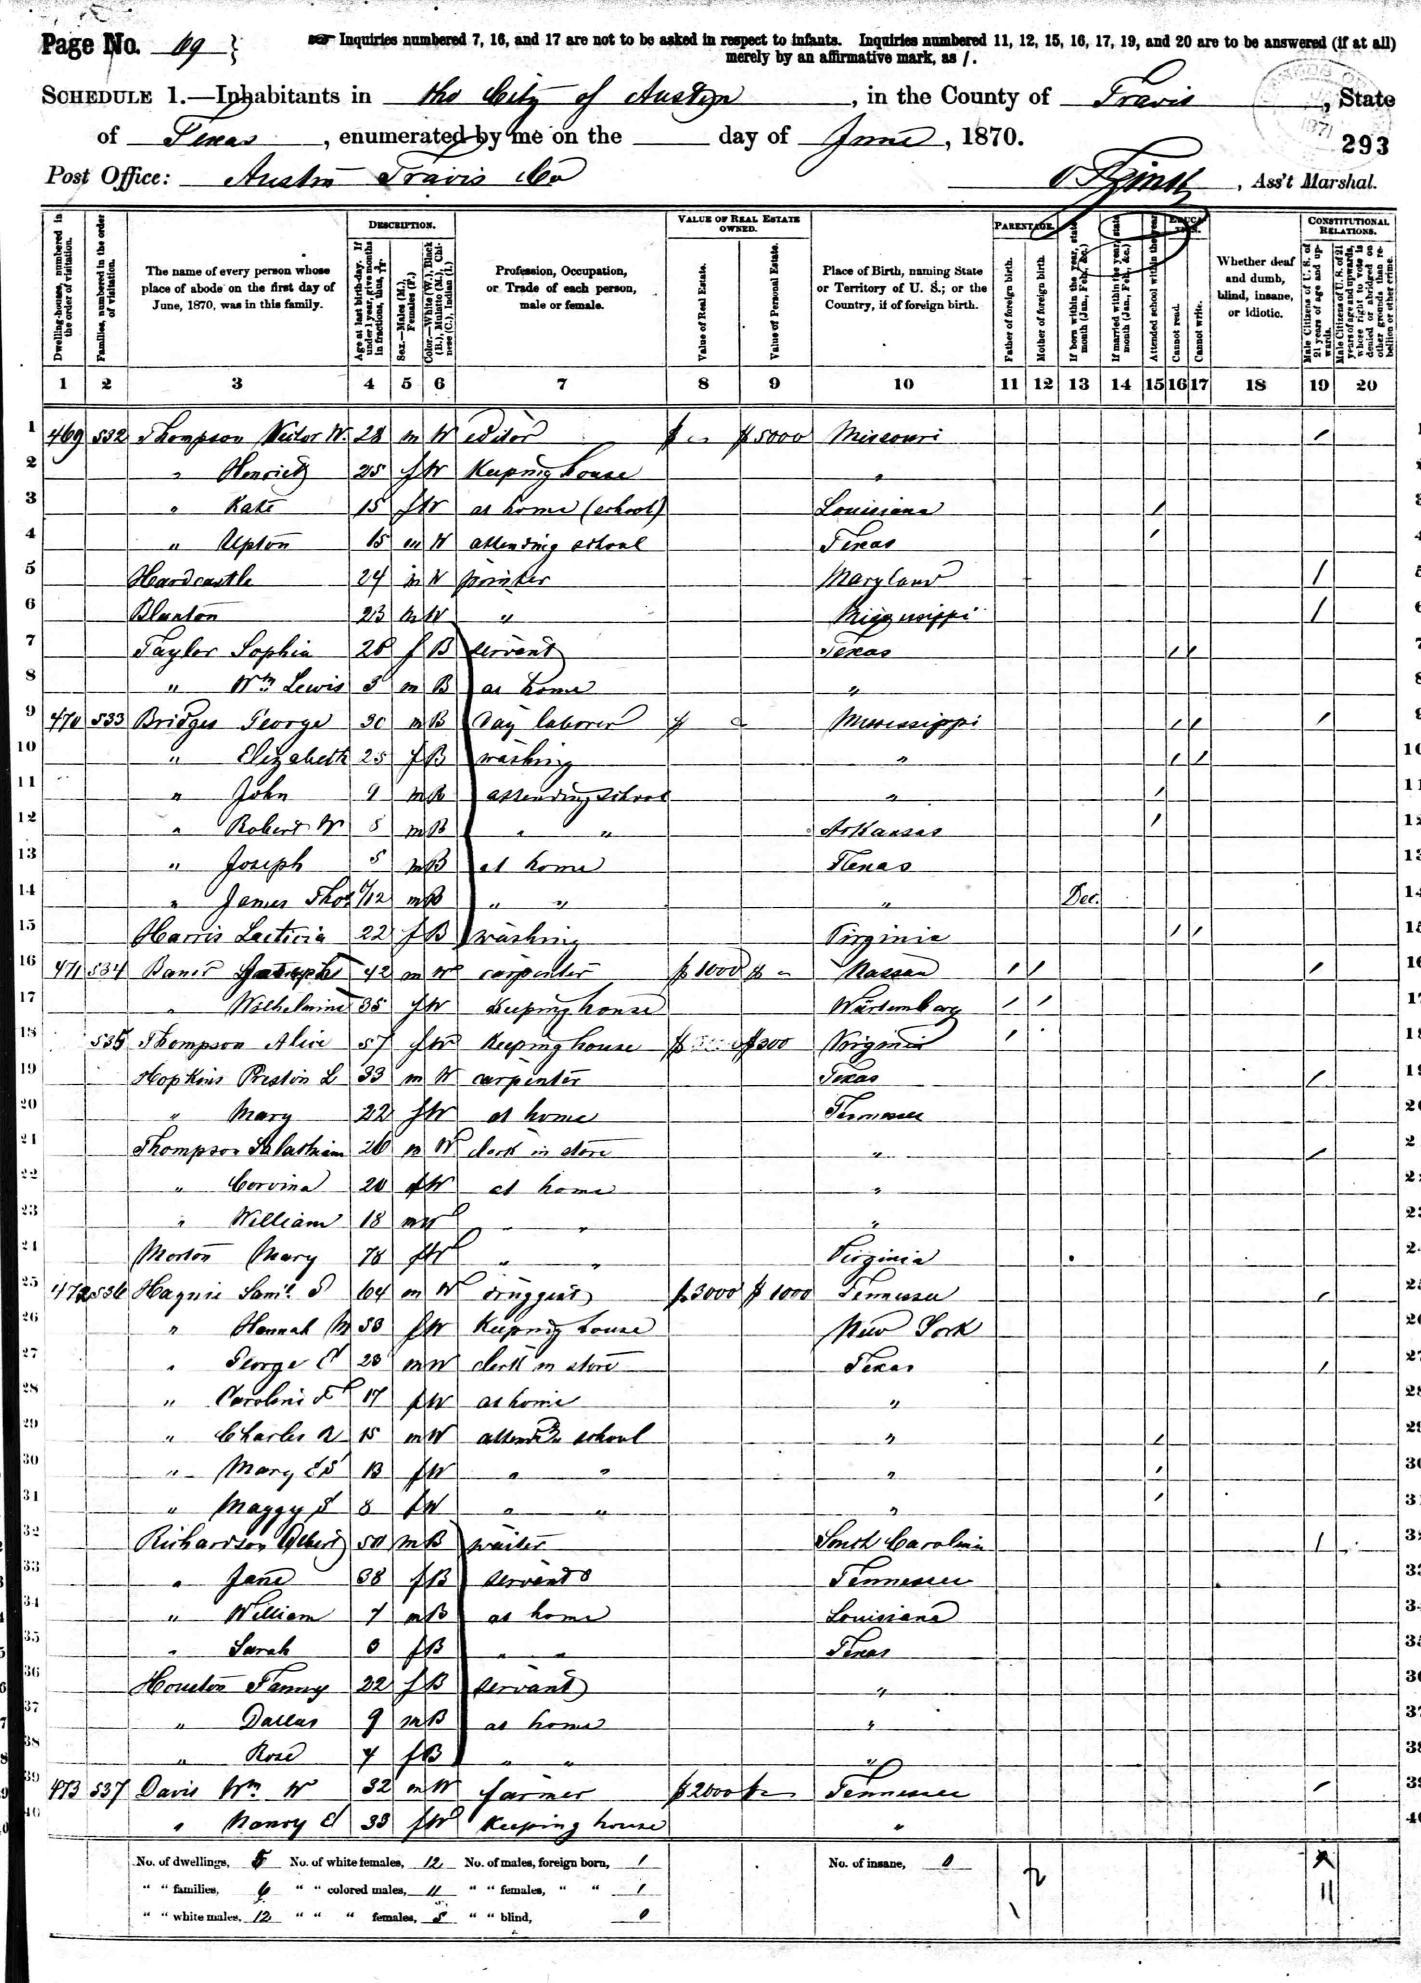 Page No. 119 } Inquiries numbered 7, 16, and 17 are not to be asked in respect to infants. Inquiries numbered 11, 12, 15, 16, 17, 19, and 20 are to be answered (if at all)
merely by an affirmative mark, as /.
SCHEDULE 1.—Inhabitants in the City of Austin, in the County of Travis, State
of Texas, enumerated by me on the day of June, 1870.
293
Post Office: Austin Travis Co , Ass't Marshal.
Dwelling-houses, numbered in the order of visitation.
Families, numbered in the order of visitation.
The name of every person whose place of abode on the first day of June, 1870, was in this family.
DESCRIPTION.
Age at last birth-day. If under 1 year, give months in fractions, thus, 3/12.
Sex.—Males (M.), Females (F.)
Color.—White (W.), Black (B.), Mulatto (M.), Chinese (C.), Indian (I.)
Profession, Occupation, or Trade of each person, male or female.
VALUE OF REAL ESTATE OWNED.
Value of Real Estate.
Value of Personal Estate.
Place of Birth, naming State or Territory of U. S.; or the Country, if of foreign birth.
PARENTAGE.
Father of foreign birth.
Mother of foreign birth.
If born within the year, state month (Jan., Feb., &c.)
If married within the year, state month (Jan., Feb., &c.)
EDUCATION.
Attended school within the year
Cannot read.
Cannot write.
Whether deaf and dumb, blind, insane, or idiotic.
CONSTITUTIONAL RELATIONS.
Male Citizens of U. S. of 21 years of age and upwards.
Male Citizens of U. S. of 21 years of age and upwards, whose right to vote is denied or abridged on other grounds than rebellion or other crime.
1 2 3 4 5 6 7 8 9 10 11 12 13 14 15 16 17 18 19 20
1 469 532 Thompson W. 28 m W editor $ $5000 Missouri /
2 " 25 f W Keeping house "
3 " Kate 15 f W at home (school) Louisiana /
4 " Upton 15 m W attending school Texas /
5 Hardcastle 24 m W printer Maryland /
6 Blanton 23 m W " Mississippi /
7 Taylor Sophia f B servant Texas / /
8 " Wm Lewis 3 m B at home "
9 470 533 Bridges George 30 m B day laborer $ Mississippi / / /
10 " Elizabeth 25 f B washing " / /
11 " John 9 m B attending school " /
12 " Robert W m B " " Arkansas /
13 " Joseph 5 m B at home Texas
14 " James Thos /12 m B " " " Dec.
15 Harris Laeticia 22 f B washing Virginia / /
16 471 534 42 m W carpenter $1000 $ Nassau / / /
17 " Wilhelmine 35 f W Keeping house Würtemberg / /
18 535 Thompson Alice 57 f W Keeping house $ $300 Virginia /
19 Hopkins Preston L 33 m W carpenter Texas /
20 " Mary 22 f W at home Tennessee
21 Thompson 26 m W clerk in store " /
22 " Corvina 20 f W at home "
23 " William 18 m W " " "
24 Morton Mary 78 f W " " Virginia
25 472 536 Haynie Saml. 64 m W druggist $3000 $1000 Tennessee /
26 " Hannah M 53 f W Keeping house New York
27 " George E 23 m W clerk in store Texas /
28 " Caroline F 17 f W at home "
29 " Charles 15 m W attendg school " /
30 " Mary 13 f W " " " /
31 " Maggy 8 f W " " " /
32 Richardson Albert 50 m B waiter South Carolina /
33 " Jane 38 f B servant Tennessee
34 " William 7 m B at home Louisiana
35 " Sarah f B " " Texas
36 Houston Fanny 22 f B servant "
37 " Dallas 9 m B at home "
38 " Rose 4 f B " " "
39 473 537 Davis Wm W 32 m W farmer $2000 $ Tennessee /
40 " Nancy E 33 f W Keeping house "
No. of dwellings, 5 No. of white females, 12 No. of males, foreign born, 1 No. of insane, 0
" " families, 6 " " colored males, 11 " " females, " " 1
" " white males, 12 " " " females, 5 " " blind, 0
2
11